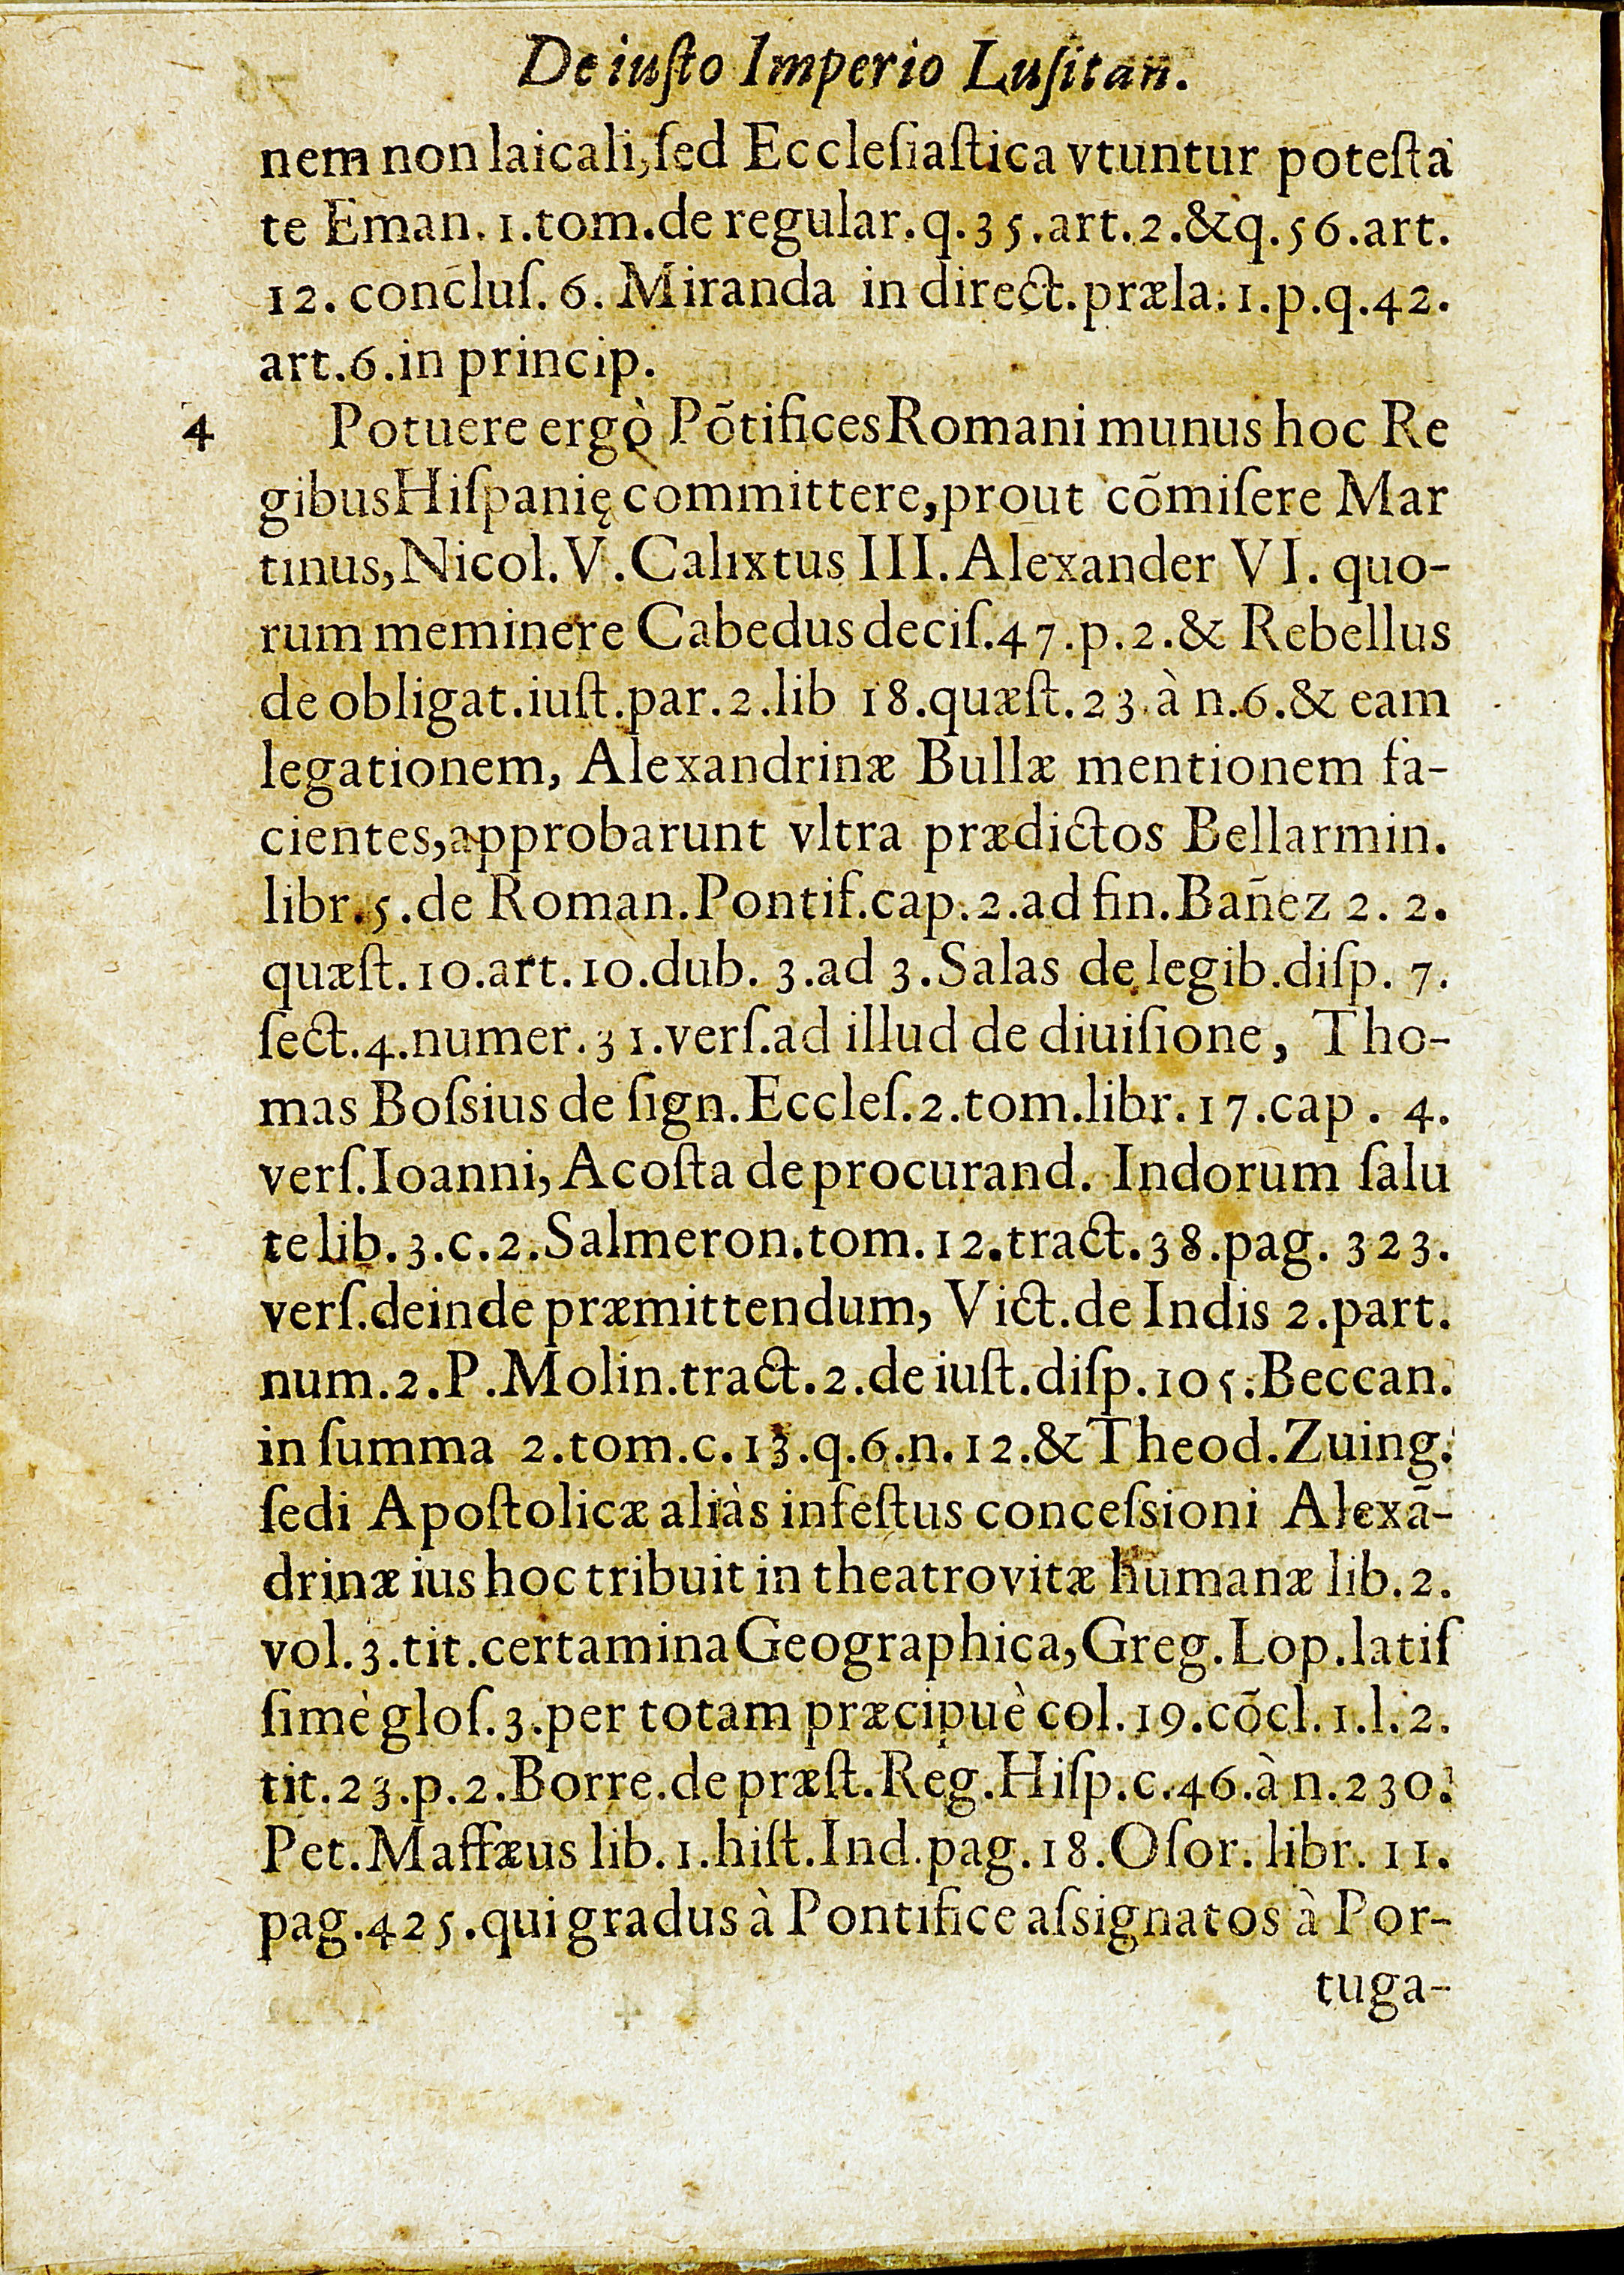 De iuſto Imperio Luſitan.
nem non laicali, ſed Eccleſiaſtica vtuntur poteſta
te Eman. 1. tom. de regular. q. 35. art. 2. & q. 56. art.
12. concluſ. 6. Miranda in direct. præla. 1. p. q. 42.
art. 6. in princip.
4 Potuere ergò Põtifices Romani munus hoc Re
gibus Hiſpanię committere, prout cõmiſere Mar
tinus, Nicol. V. Calixtus III. Alexander VI. quo-
rum meminere Cabedus deciſ. 47. p. 2. & Rebellus
de obligat. iuſt. par. 2. lib 18. quæſt. 23. à n. 6. & eam
legationem, Alexandrinæ Bullæ mentionem fa-
cientes, approbarunt vltra prædictos Bellarmin.
libr. 5. de Roman. Pontif. cap. 2. ad fin. Bañez 2. 2.
quæſt. 10. art. 10. dub. 3. ad 3. Salas de legib. diſp. 7.
ſect. 4. numer. 31. verſ. ad illud de diuiſione, Tho-
mas Boſsius de ſign. Eccleſ. 2. tom. libr. 17. cap. 4.
verſ. Ioanni, Acoſta de procurand. Indorum ſalu
te lib. 3. c. 2. Salmeron. tom. 12. tract. 38. pag. 323.
verſ. deinde præmittendum, Vict. de Indis 2. part.
num. 2. P. Molin. tract. 2. de iuſt. diſp. 105. Beccan.
in ſumma 2. tom. c. 13. q. 6. n. 12. & Theod. Zuing.
ſedi Apoſtolicæ aliàs infeſtus conceſsioni Alexã-
drinæ ius hoc tribuit in theatro vitæ humanæ lib. 2.
vol. 3. tit. certamina Geographica, Greg. Lop. latiſ
ſimè gloſ. 3. per totam præcipuè col. 19. cõcl. 1. l. 2.
tit. 23. p. 2. Borre. de præſt. Reg. Hiſp. c. 46. à n. 230.
Pet. Maffæus lib. 1. hiſt. Ind. pag. 18. Oſor. libr. 11.
pag. 425. qui gradus à Pontifice aſsignatos à Por-
tuga-